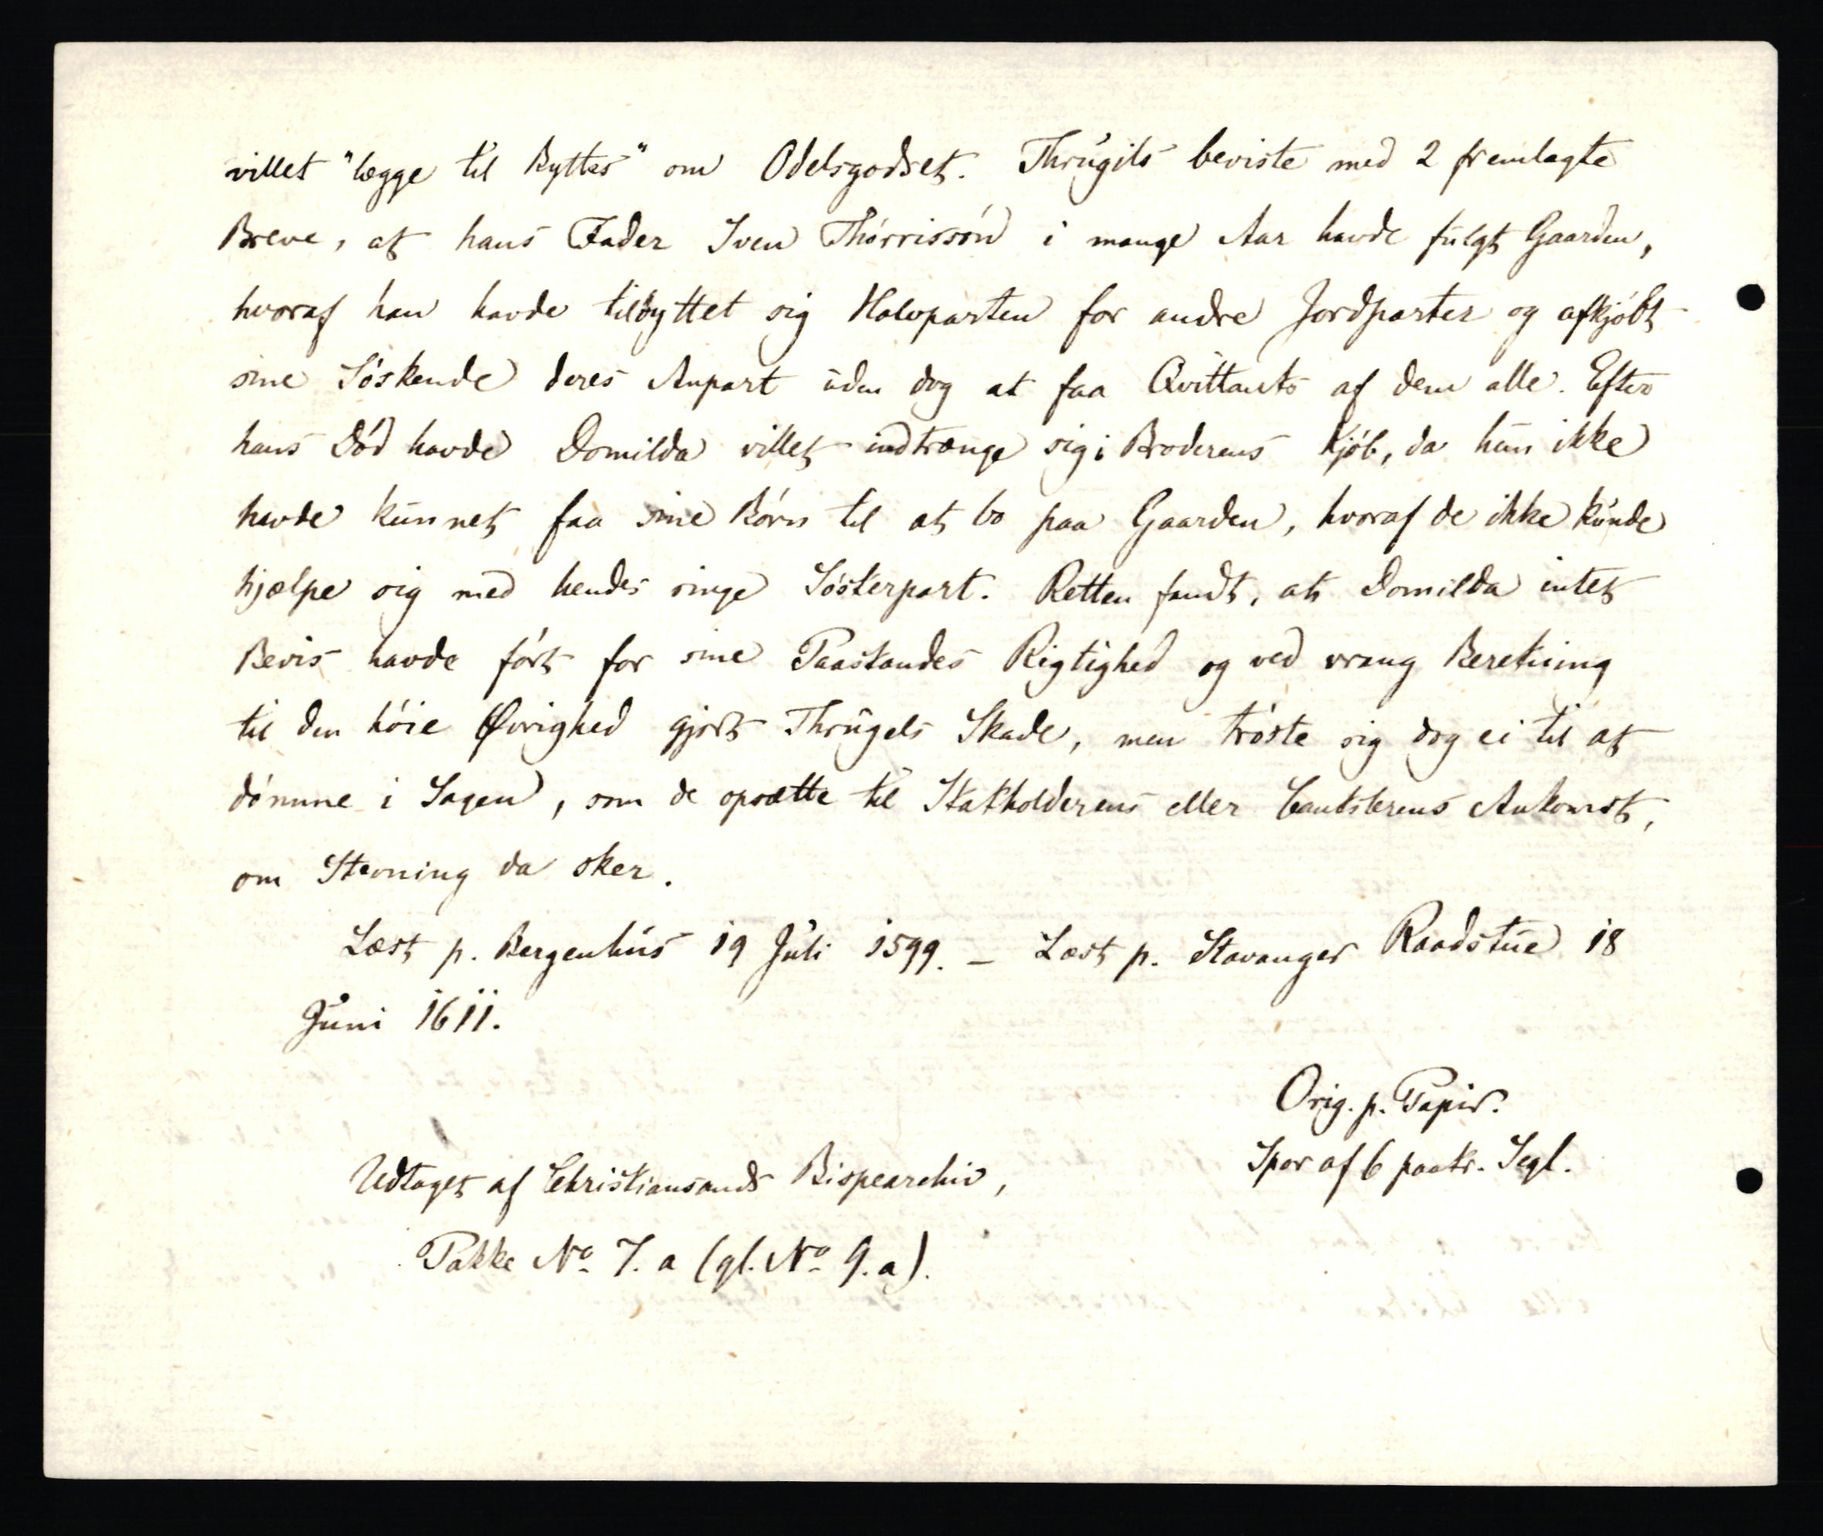 villet "lægge til Byttes" om Odelsgodset. Thrugils beviste med 2 fremlagte
Breve, at hans Fader Sven Thórrissón i mange Aar havde fulgt Gaarden,
hvoraf han havde tilbyttet sig Halvparten for andre Jordparter og afkjóbt
sine Sóskende deres Anpart uden dog at faa Qvittants af dem alle. Efter
hans Dód havde Domilda villet indtrænge sig i Broderens Kjób, da hun ikke
havde kunnet faa sine Bórn til at bo paa Gaarden, hvoraf de ikke kunde
hjælpe sig med hendes ringe Sósterpart. Retten fandt, at Domilda intet
Bevis havde fórt for sine Paastandes Rigtighed og ved vrang Beretning
til den hóie Øvrighed gjort Thrugels Skade, men tróste sig dog ei til at
dómme i Sagen, som de opsætte til Statholderens eller Cantslerens Ankomst,
om Stevning da sker.
Læst p. Bergenhus 19 Juli 1599. – Læst p. Stavanger Raadstue 18
Juni 1611.
Orig. p. Papir.
Spor af 6 paatr. Segl.
Udtaget af Christiansands Bispearchiv,
Pakke No 7. a (gl. No 9. a).